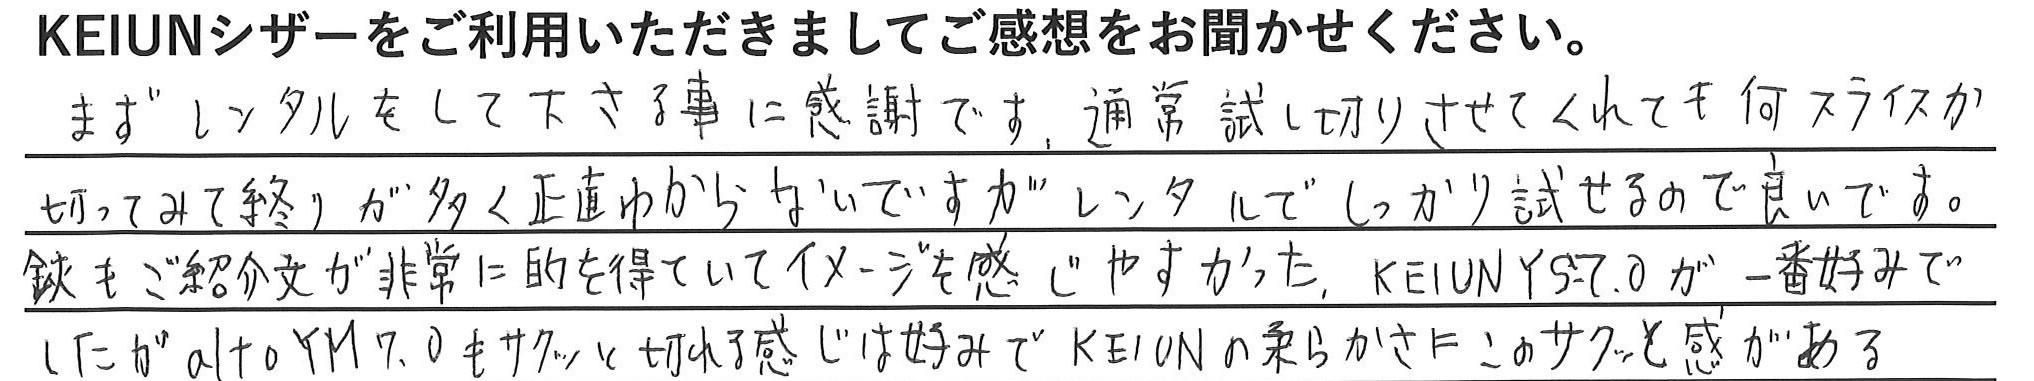 KEIUNシザーをご利用いただきましてご感想をお聞かせください。
まずレンタルをして下さる事に感謝です、通常試し切りさせてくれても何スライスか
切ってみて終りが多く正直わからないですがレンタルでしっかり試せるので良いです。
鋏もご紹介文が非常に的を得ていてイメージを感じやすかった、KEIUN YS-7.0が一番好みで
したがalto YM 7.0もサクッと切れる感じは好みでKEIUNの柔らかさにこのサクッと感がある